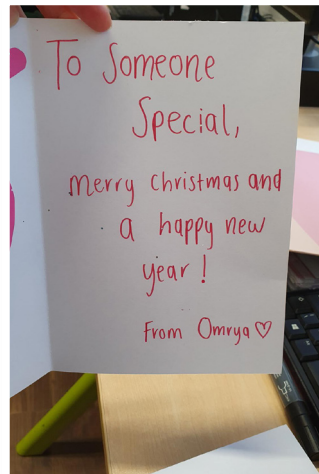 To Someone
Special,
Merry Christmas and
a happy new
year!
From Omrya♡